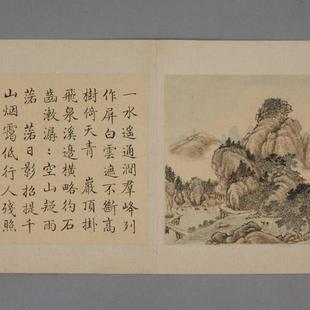 一水遙通澗羣峰列
作屏白雲遮不斷高
樹倚天青 巖頂掛
飛泉溪邊橫略彴石
齒漱潺〻空山疑雨
落 落日影招提千
山烟靄低行人殘照